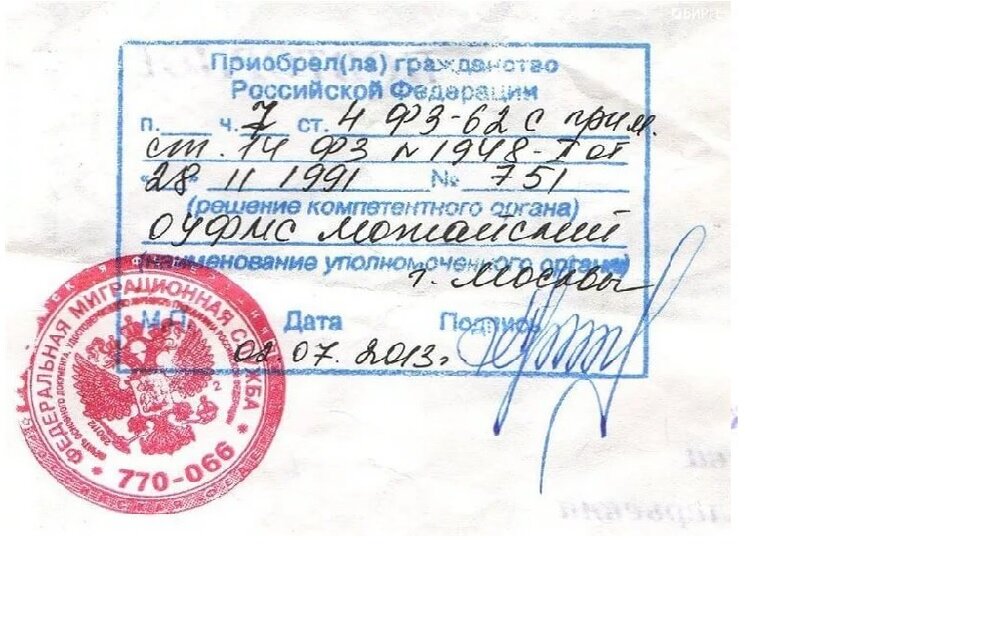 Приобрел(ла) гражданство
Российской Федерации
п.___ ч. 7 ст. 4 ФЗ-62 с прим.
ст. 14 ФЗ N 1948-I от
28 11 1991 № 751
(решение компетентного органа)
ОУФМС Можайский
(наименование уполномоченного органа)
г. Москвы
М.П. Дата Подпись
02 07. 2013г
ФЕДЕРАЛЬНАЯ МИГРАЦИОННАЯ СЛУЖБА
770-066